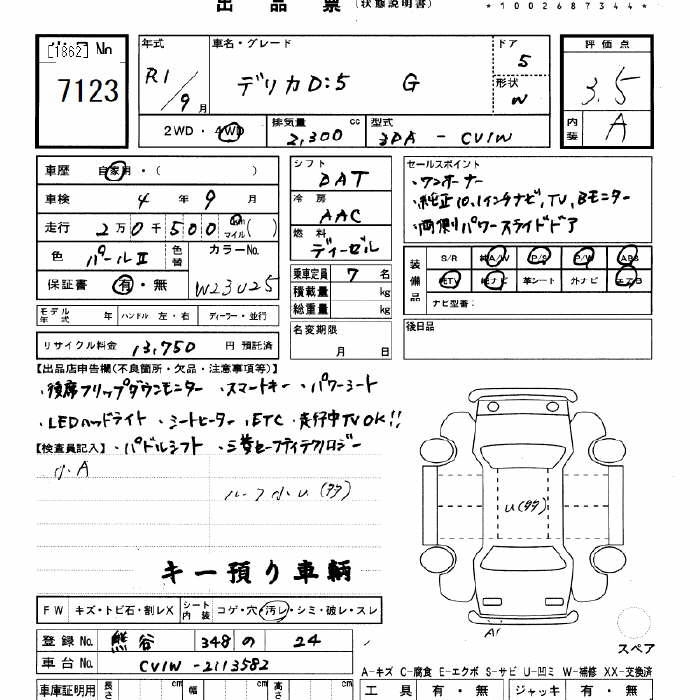 出品票 (状態説明書) *1002687344*
[1862] No 7123
年式 R1/9月
車名・グレード デリカD:5 G
ドア 5
形状 W
評価点 3.5
内装 A
2WD・4WD
排気量 2,300 cc
型式 3DA - CV1W
車歴 自家用・( )
車検 4年9月
走行 2万0千500 Km マイル( )
色 パールⅡ 色替 カラーNo. W23U25
保証書 有・無
シフト DAT
冷房 AAC
燃料 ディーゼル
乗車定員 7名
積載量 kg
総重量 kg
セールスポイント
・ワンオーナー
・純正10.1インチナビ,TV,Bモニター
・両側パワースライドドア
装備品 S/R 純A/W P/S P/W ABS
純TV 純ナビ 革シート 外ナビ エアB
ナビ型番:
モデル年式 年 ハンドル 左・右 ディーラー・並行
名変期限 月 日
後日品
リサイクル料金 13,750 円 預託済
【出品店申告欄(不良箇所・欠品・注意事項等)】
・後席フリップダウンモニター ・スマートキー ・パワーシート
・LEDヘッドライト ・シートヒーター ・ETC ・走行中TVOK!!
【検査員記入】 ・パドルシフト ・三菱セーフティテクノロジー
小A
ルーフ小U(タタ)
U(タタ)
キー預り車輌
A1
スペア
FW キズ・トビ石・割レX シート内装 コゲ・穴・汚レ・シミ・破レ・スレ
登録No. 熊谷 348 の 24
車台No. CV1W-2113582
A-キズ C-腐食 E-エクボ S-サビ U-凹ミ W-補修 XX-交換済
車庫証明用 長さ cm 幅 cm 高さ cm 工具 有・無 ジャッキ 有・無